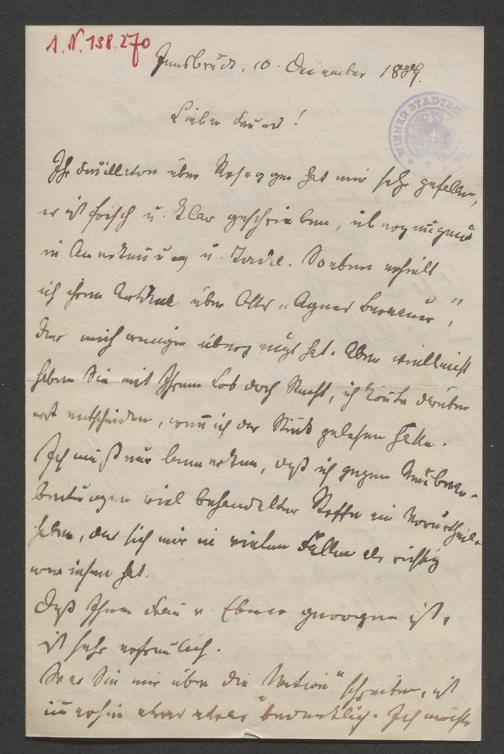 I. N. 138.270
Innsbruck, 10. December 1889.
WIENER STADTB
Lieber Freund!
Ihr Feuilleton über Rosegger hat mir sehr gefallen,
es ist frisch u. klar geschrieben, überzeugend
in Anerkennung u. Tadel. Soeben erhielt
ich Ihren Artikel über Otto's „Agnes Bernauer",
der mich weniger überzeugt hat. Aber vielleicht
haben Sie mit Ihrem Lob doch Recht, ich könte darüber
erst entscheiden, wenn ich das Stück gelesen hätte.
Ich muß nur bemerken, daß ich gegen Neubear-
beitungen viel behandelter Stoffe ein Vorurtheil
habe, das sich mir in vielen Fällen als richtig
erwiesen hat.
Daß Ihnen Frau v. Ebner gewogen ist,
ist sehr erfreulich.
Was Sie mir über die "Nation" schreiben, ist
immerhin etwas bedenklich. Ich möchte